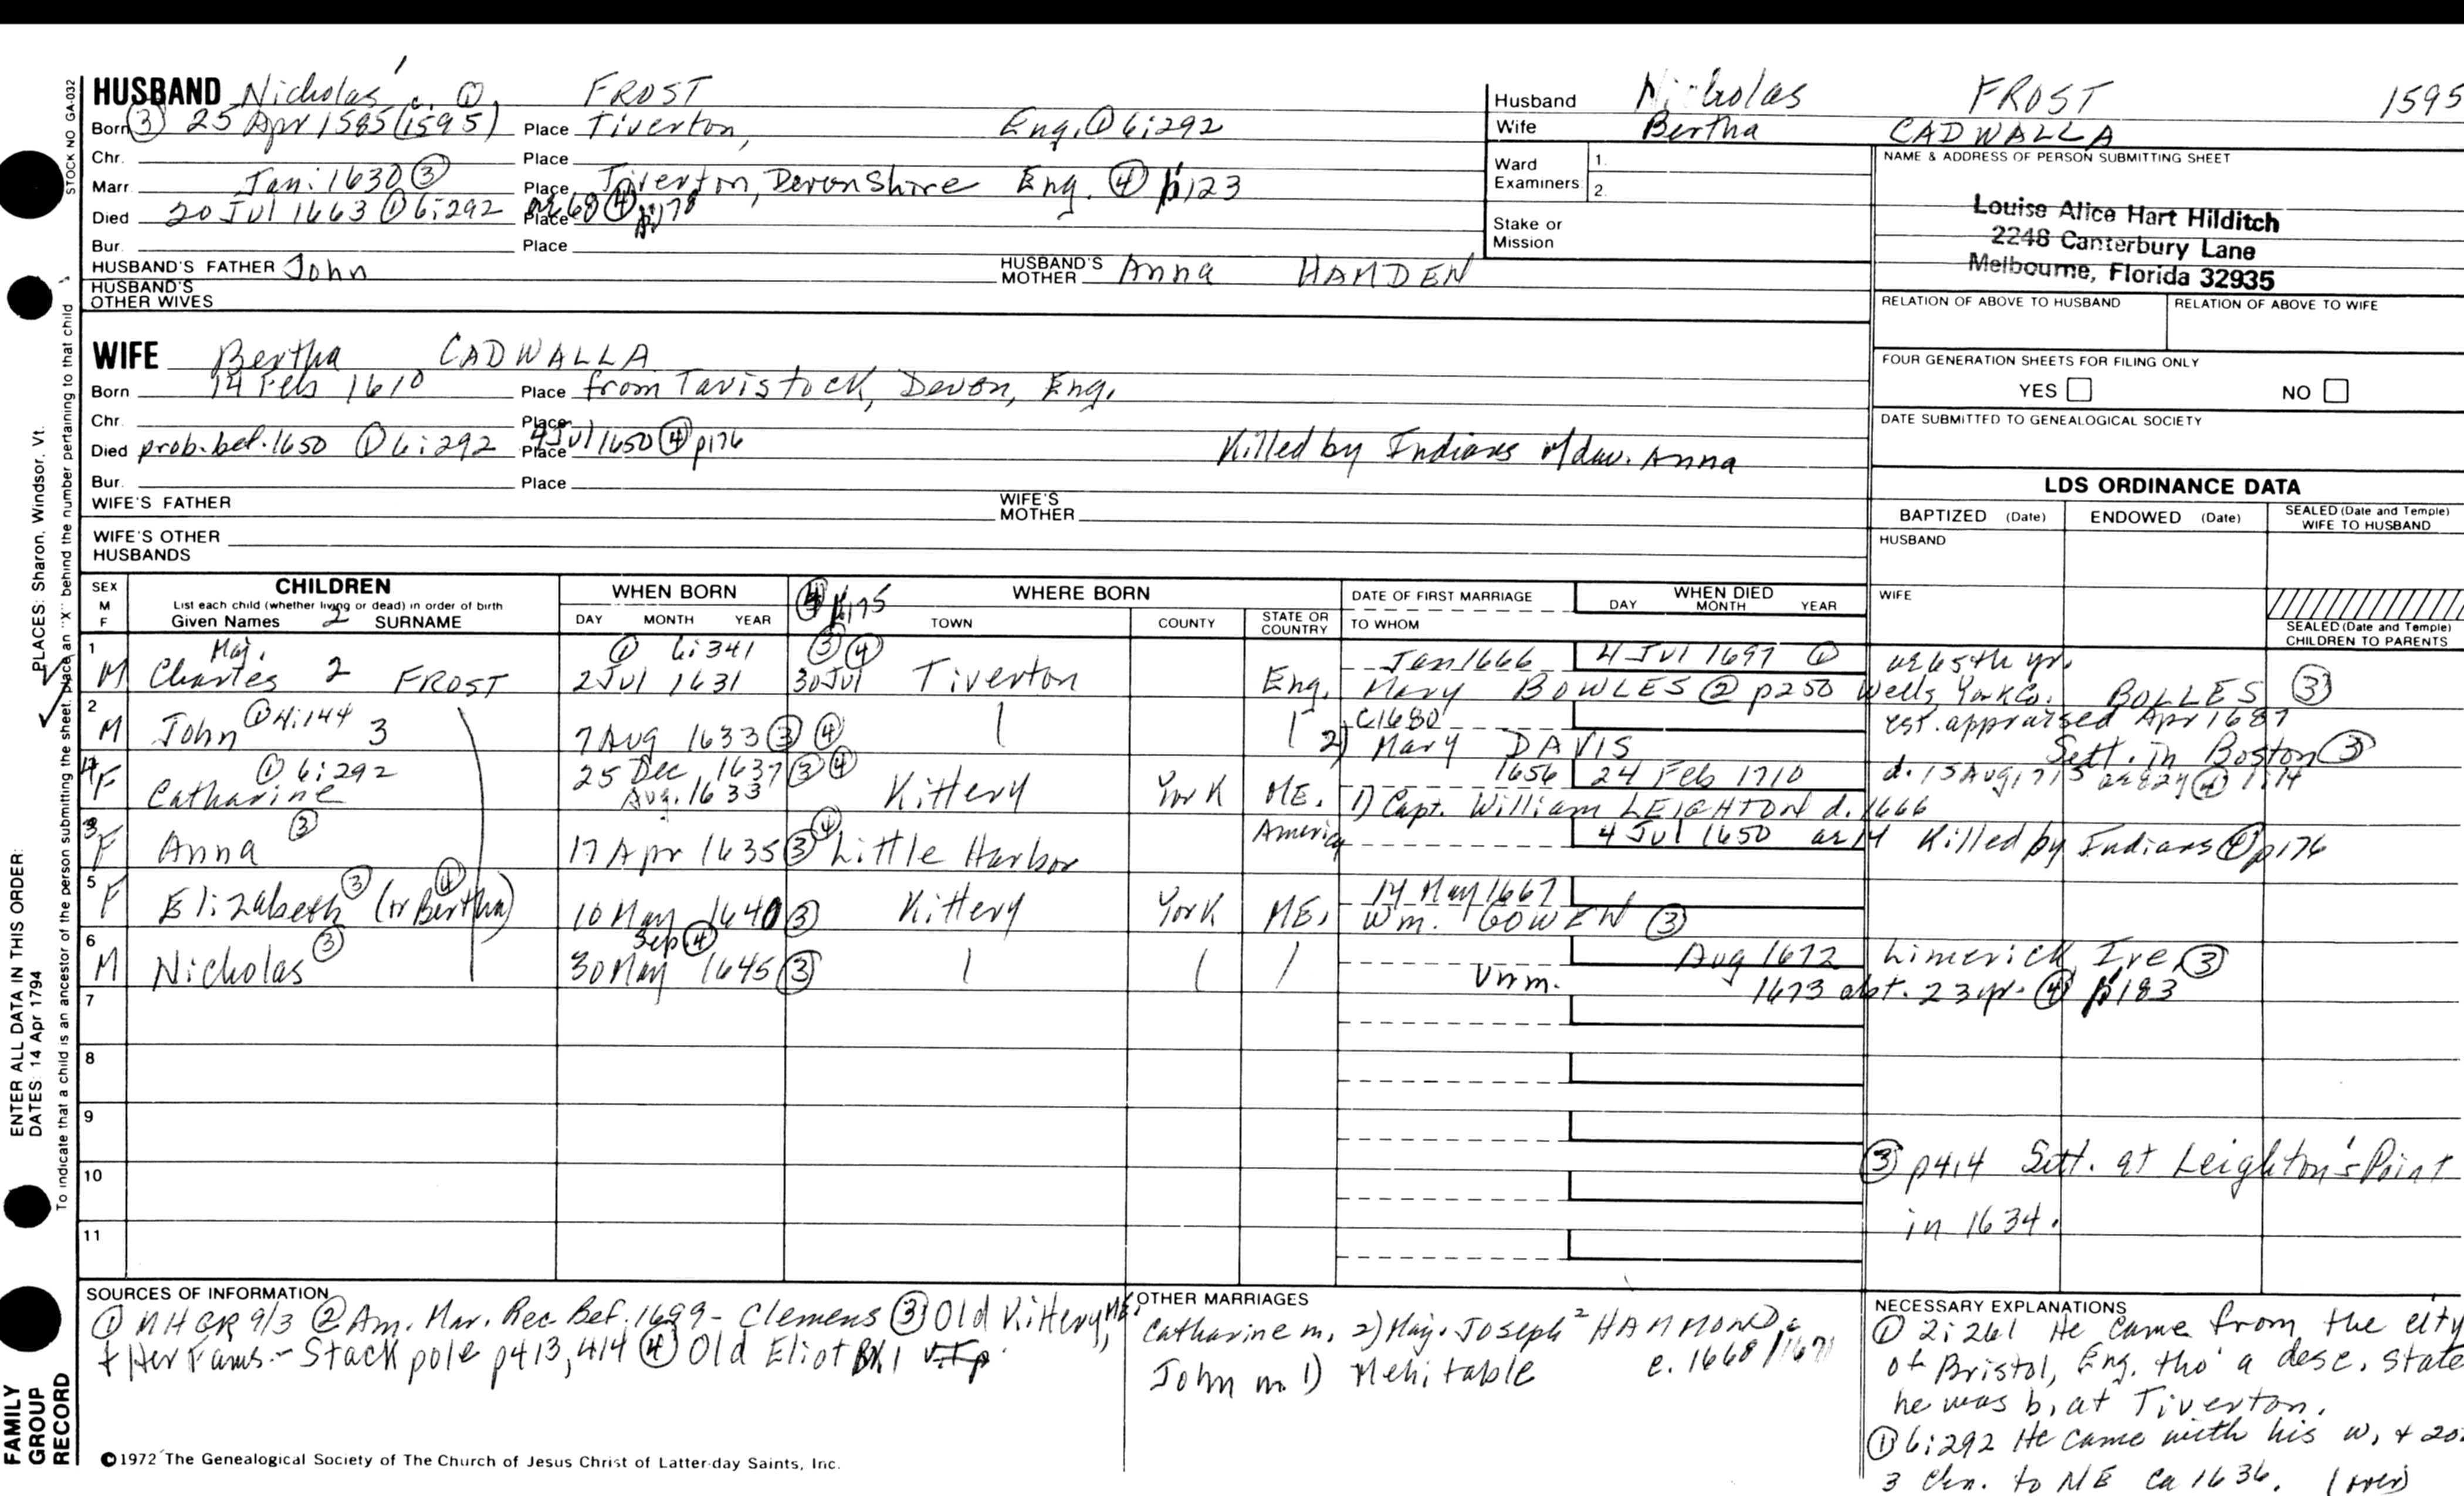 STOCK NO GA-032
HUSBAND Nicholas 1 FROST
Born ③ 25 Apr 1585 (1595) c. ① Place Tiverton, Eng. ① 6:292
Chr. Place
Marr. Jan. 1630 ③ Place Tiverton, Devonshire Eng. ④ p123
Died 20 Jul 1663 ① 6:292 Place ae 68 ④ p178
Bur. Place
HUSBAND'S FATHER John HUSBAND'S MOTHER Anna HAMDEN
HUSBAND'S OTHER WIVES
Husband Nicholas FROST 1595
Wife Bertha CADWALLA
Ward Examiners 1. 2.
Stake or Mission
NAME & ADDRESS OF PERSON SUBMITTING SHEET
Louise Alice Hart Hilditch
2248 Canterbury Lane
Melbourne, Florida 32935
RELATION OF ABOVE TO HUSBAND RELATION OF ABOVE TO WIFE
FOUR GENERATION SHEETS FOR FILING ONLY
YES NO
DATE SUBMITTED TO GENEALOGICAL SOCIETY
WIFE Bertha CADWALLA
Born 14 Feb 1610 Place from Tavistock, Devon, Eng.
Chr. Place
Died prob. bef. 1650 ① 6:292 Place 4 Jul 1650 ④ p176 Killed by Indians w/dau. Anna
Bur. Place
WIFE'S FATHER WIFE'S MOTHER
WIFE'S OTHER HUSBANDS
LDS ORDINANCE DATA
BAPTIZED (Date) ENDOWED (Date) SEALED (Date and Temple) WIFE TO HUSBAND
HUSBAND
WIFE
SEALED (Date and Temple) CHILDREN TO PARENTS
SEX M F CHILDREN List each child (whether living or dead) in order of birth Given Names SURNAME 2
WHEN BORN DAY MONTH YEAR
④ p175 WHERE BORN TOWN COUNTY STATE OR COUNTRY
DATE OF FIRST MARRIAGE TO WHOM
WHEN DIED DAY MONTH YEAR
1 Maj. ① 6:341 ③ ④ Jan 1666 4 Jul 1697 ① ae 65th yr.
M Charles 2 FROST 2 Jul 1631 30 Jul Tiverton Eng. Mary BOWLES ② p250 Wells, York Co. BOLLES ③
2 ① 4:144 c1680 est. appraised Apr 1687
M John 3 7 Aug 1633 ③ ④ 2) Mary DAVIS Sett. in Boston ③
4 ① 6:292 25 Dec 1637 ③ ④ 1656 24 Feb 1710 d. 15 Aug 1715 ae 82y ④ 1:14
F Catharine Aug. 1633 Kittery York ME. 1) Capt. William LEIGHTON d. 1666
3 ③ ④ America 4 Jul 1650 ae 14 Killed by Indians ④ p176
F Anna 17 Apr 1635 ③ Little Harbor
5 14 May 1667
F Elizabeth ③ (or Bertha) ④ 10 May 1640 ③ Kittery York ME. Wm. GOWEN ③
6 Sep ④ Aug 1672 Limerick Ire. ③
M Nicholas ③ 30 May 1645 ③ Unm.
7 1673 abt. 23 yr. ④ p183
8
9
10
11
③ p414 Sett. at Leighton's Point
in 1634.
SOURCES OF INFORMATION
① NHGR 9/3 ② Am. Mar. Rec. Bef. 1699 - Clemens ③ Old Kittery, ME.
+ Her Fams. - Stackpole p413, 414 ④ Old Eliot BK 1
OTHER MARRIAGES
Catharine m. 2) Maj. Joseph 2 HAMMOND
c. 1668/1671
John m. 1) Mehitable
NECESSARY EXPLANATIONS
① 2:261 He came from the city
of Bristol, Eng. tho' a desc. state
he was b. at Tiverton.
① 6:292 He came with his w. + 2 or
3 chn. to NE ca 1636. (over)
©1972 The Genealogical Society of The Church of Jesus Christ of Latter-day Saints, Inc.
FAMILY GROUP RECORD
ENTER ALL DATA IN THIS ORDER:
DATES: 14 Apr 1794
PLACES: Sharon, Windsor, Vt.
To indicate that a child is an ancestor of the person submitting the sheet, place an "X" behind the number pertaining to that child